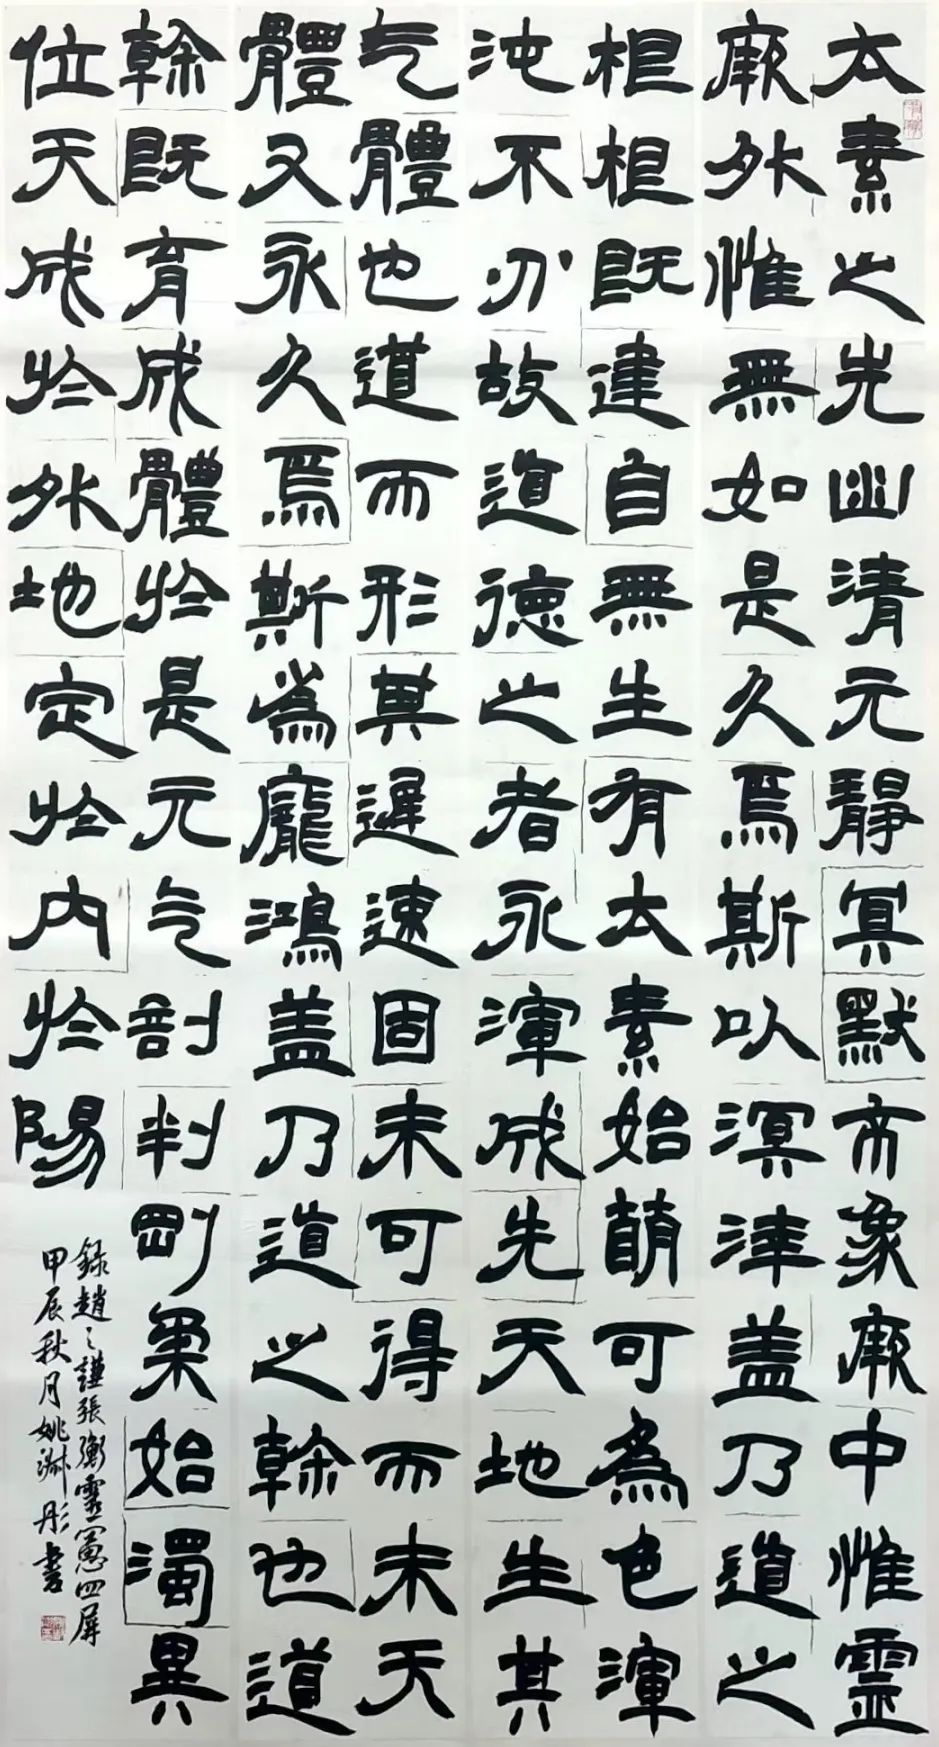 太素之先幽清元靜冥默市象厥中惟靈
厥外惟無如是久焉斯以溟津盖乃道之
根根既建自無生有太素始萌可為色渾
沌不分故道德之者永渾成先天地生其
气體也道而形其遲速固未可得而未天
體又永久焉斯為龐鴻盖乃道之幹也道
幹既育成體於是元气剖判剛柔始濁異
位天成於外地定於內於陽
錄趙之謙張衡靈憲四屏
甲辰秋月姚淋彤書